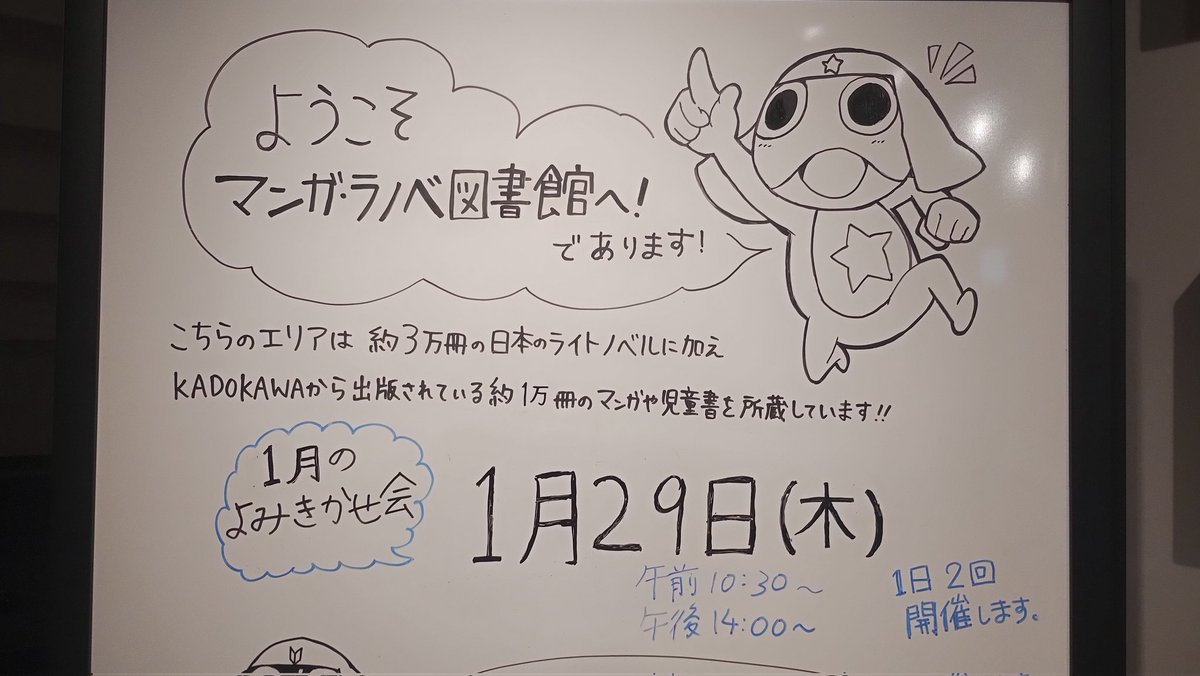 ようこそ
マンガ・ラノベ図書館へ!
であります!
こちらのエリアは 約3万冊の日本のライトノベルに加え
KADOKAWAから出版されている約1万冊のマンガや児童書を所蔵しています!!
1月の
よみきかせ会
1月29日(木)
午前10:30～
午後14:00～
1日2回
開催します。